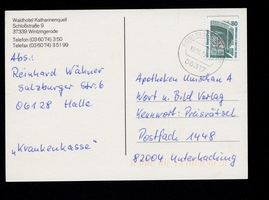 Waldhotel Katharinenquell
Schloßstraße 9
37339 Wintzingerode
Telefon (03 60 74) 3 50
Telefax (03 60 74) 3 51 99
Abs.:
Reinhard Wähner
Salzburger Str. 6
06128 Halle
"Krankenkasse"
80
Apotheken Umschau A
Wort u. Bild Verlag
Kennwort: Preisrätsel
Postfach 1448
82004 Unterhaching